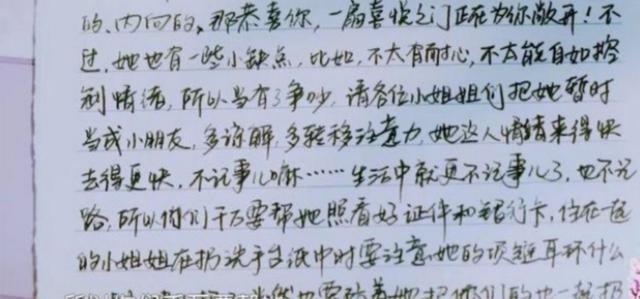 的、内向的，那恭喜你，一扇喜悦之门正在为你敞开！不
过，她也有一些小缺点，比如，不太有耐心，不太能自如控
制情绪，所以当有了争吵，请各位小姐姐们把她暂时
当成小朋友，多谅解，多转移注意力，她这人情绪来得快
去得更快，不记事儿嘛……生活中就更不记事儿了，也不记
路，所以你们千万要帮她照看好证件和银行卡，住在一起
的小姐姐在扔洗手台纸巾时要注意她的项链耳环什么